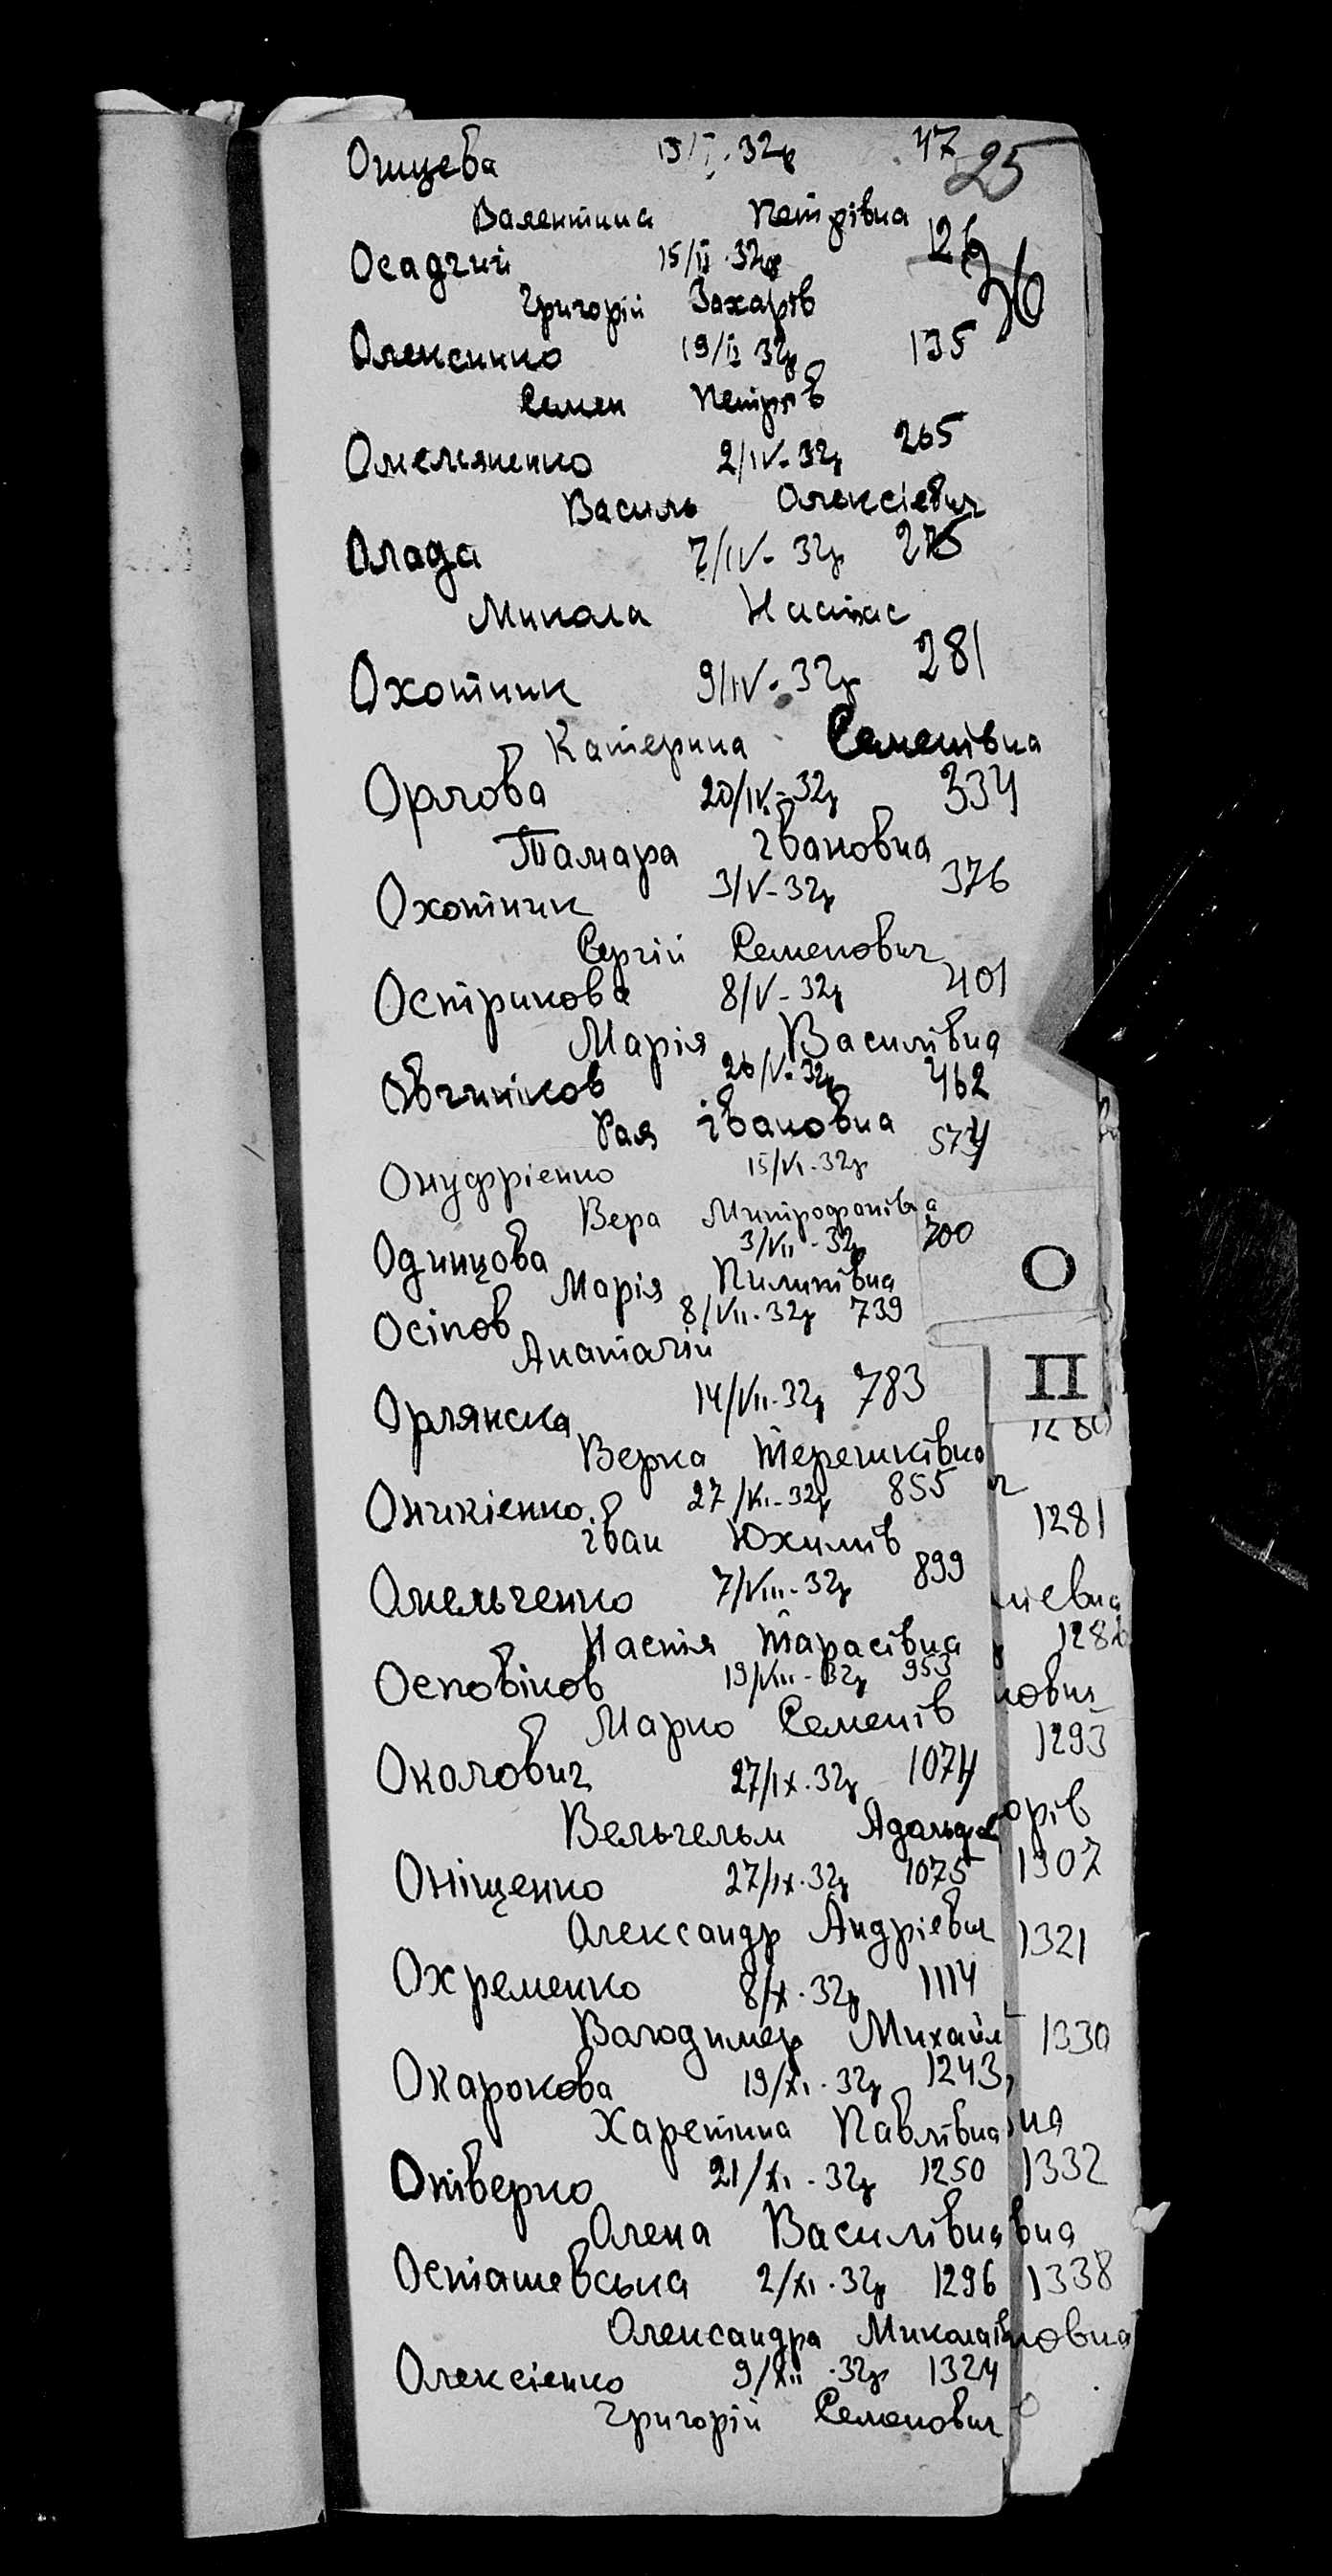 Ощцева 13/I.32р 47
25
Валентина Петрівна
Осадчий 15/II.32р 126
36
Григорій Захарів
Олексинко 19/II 32р 135
Семен Петрів
Омельяненко 2/IV-32р 265
Василь Олексієвич
Олада 7/IV-32р 275
Микола
Охотник 9/IV-32р 281
Катерина Семенівна
Орлова 20/IV-32р 334
Тамара Івановна
Охотник 3/V-32р 376
Сергій Семенович
Острикова 8/V-32р 401
Марія Василівна
Овчиніков 26/V-32р 462
Рая Івановна
Онуфрієнко 15/VI-32р 574
Вера Митрофанівна
Одинцова 3/VII-32р 700
Марія Пилипівна
Осіпов 8/VII.32р 739
Анатолій
Орлянска 14/VII-32р 783
Верка Терешківна
Оникієнко 27/VII-32р 855
Іван Юхимів
Омельченко 7/VIII-32р 899
Настя Тарасівна
Осповіков 19/VIII-32р 953
Марко Семенів
Околович 27/IX.32р 1074
Вельгельм Адольф
Оніщенко 27/IX.32р 1075
Олександр Андрієвич
Охременко 8/X.32р 1114
Володимер Михайл
Окарокова 19/XI.32р 1243
Харетина Павлівна
Опіверко 21/XI.32р 1250
Олена Василівна
Осташевська 2/XI.32р 1296
Олександра Миколаїв
Олексієнко 9/XII.32р 1324
Григорій Семенович
О
П
1280
1281
1293
1307
1321
1330
1332
1338